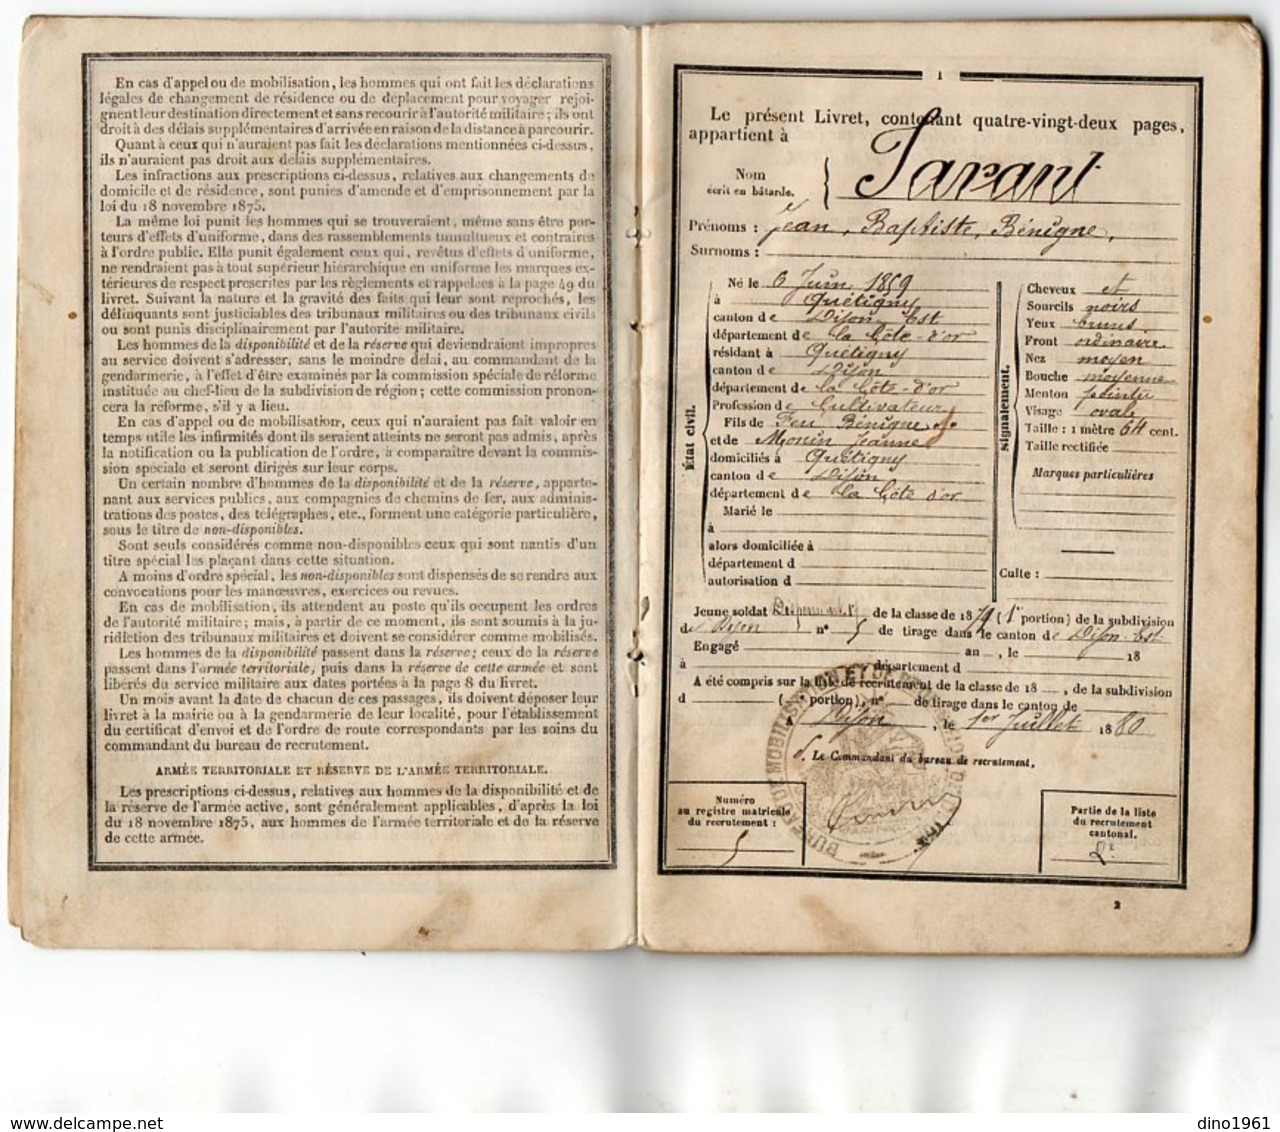 En cas d'appel ou de mobilisation, les hommes qui ont fait les déclarations
légales de changement de résidence ou de déplacement pour voyager rejoi-
gnent leur destination directement et sans recourir à l'autorité militaire ; ils ont
droit à des délais supplémentaires d'arrivée en raison de la distance à parcourir.
Quant à ceux qui n'auraient pas fait les déclarations mentionnées ci-dessus,
ils n'auraient pas droit aux délais supplémentaires.
Les infractions aux prescriptions ci-dessus, relatives aux changements de
domicile et de résidence, sont punies d'amende et d'emprisonnement par la
loi du 18 novembre 1875.
La même loi punit les hommes qui se trouveraient, même sans être por-
teurs d'effets d'uniforme, dans des rassemblements tumultueux et contraires
à l'ordre public. Elle punit également ceux qui, revêtus d'effets d'uniforme,
ne rendraient pas à tout supérieur hiérarchique en uniforme les marques ex-
térieures de respect prescrites par les règlements et rappelées à la page 49 du
livret. Suivant la nature et la gravité des faits qui leur sont reprochés, les
délinquants sont justiciables des tribunaux militaires ou des tribunaux civils
ou sont punis disciplinairement par l'autorité militaire.
Les hommes de la disponibilité et de la réserve qui deviendraient impropres
au service doivent s'adresser, sans le moindre délai, au commandant de la
gendarmerie, à l'effet d'être examinés par la commission spéciale de réforme
instituée au chef-lieu de la subdivision de région ; cette commission pronon-
cera la réforme, s'il y a lieu.
En cas d'appel ou de mobilisation, ceux qui n'auraient pas fait valoir en
temps utile les infirmités dont ils seraient atteints ne seront pas admis, après
la notification ou la publication de l'ordre, à comparaître devant la commis-
sion spéciale et seront dirigés sur leur corps.
Un certain nombre d'hommes de la disponibilité et de la réserve, apparte-
nant aux services publics, aux compagnies de chemins de fer, aux adminis-
trations des postes, des télégraphes, etc., forment une catégorie particulière,
sous le titre de non-disponibles.
Sont seuls considérés comme non-disponibles ceux qui sont nantis d'un
titre spécial les plaçant dans cette situation.
A moins d'ordre spécial, les non-disponibles sont dispensés de se rendre aux
convocations pour les manœuvres, exercices ou revues.
En cas de mobilisation, ils attendent au poste qu'ils occupent les ordres
de l'autorité militaire ; mais, à partir de ce moment, ils sont soumis à la ju-
ridiction des tribunaux militaires et doivent se considérer comme mobilisés.
Les hommes de la disponibilité passent dans la réserve ; ceux de la réserve
passent dans l'armée territoriale, puis dans la réserve de cette armée et sont
libérés du service militaire aux dates portées à la page 8 du livret.
Un mois avant la date de chacun de ces passages, ils doivent déposer leur
livret à la mairie ou à la gendarmerie de leur localité, pour l'établissement
du certificat d'envoi et de l'ordre de route correspondants par les soins du
commandant du bureau de recrutement.
ARMÉE TERRITORIALE ET RÉSERVE DE L'ARMÉE TERRITORIALE.
Les prescriptions ci-dessus, relatives aux hommes de la disponibilité et de
la réserve de l'armée active, sont généralement applicables, d'après la loi
du 18 novembre 1875, aux hommes de l'armée territoriale et de la réserve
de cette armée.
1
Le présent Livret, contenant quatre-vingt-deux pages,
appartient à
Nom
écrit en bâtarde.
Tavant
Prénoms : Jean, Baptiste, Bénigne,
Surnoms :
État civil.
Né le 6 Juin 1859
à Quétigny
canton de Dijon Est
département de la Côte-d'or
résidant à Quétigny
canton de Dijon
département de la Côte-d'or
Profession de Cultivateur
Fils de Feu Bénigne
et de Monin Jeanne
domiciliés à Quétigny
canton de Dijon
département de la Côte d'or
Marié le
à
alors domiciliée à
département d
autorisation d
Signalement.
Cheveux et
Sourcils noirs
Yeux bruns.
Front ordinaire
Nez moyen
Bouche moyenne
Menton pointu
Visage ovale
Taille : 1 mètre 64 cent.
Taille rectifiée
Marques particulières
Culte :
Jeune soldat de la classe de 1879 (1e portion) de la subdivision
de Dijon n° 5 de tirage dans le canton de Dijon-Est
Engagé an , le 18
à département d
A été compris sur la liste de recrutement de la classe de 18 , de la subdivision
d ( portion), n° de tirage dans le canton de
A Dijon, le 1er Juillet 1880
Le Commandant du bureau de recrutement,
Numéro
au registre matricule
du recrutement :
5
Partie de la liste
du recrutement
cantonal.
2e
2
dino1961